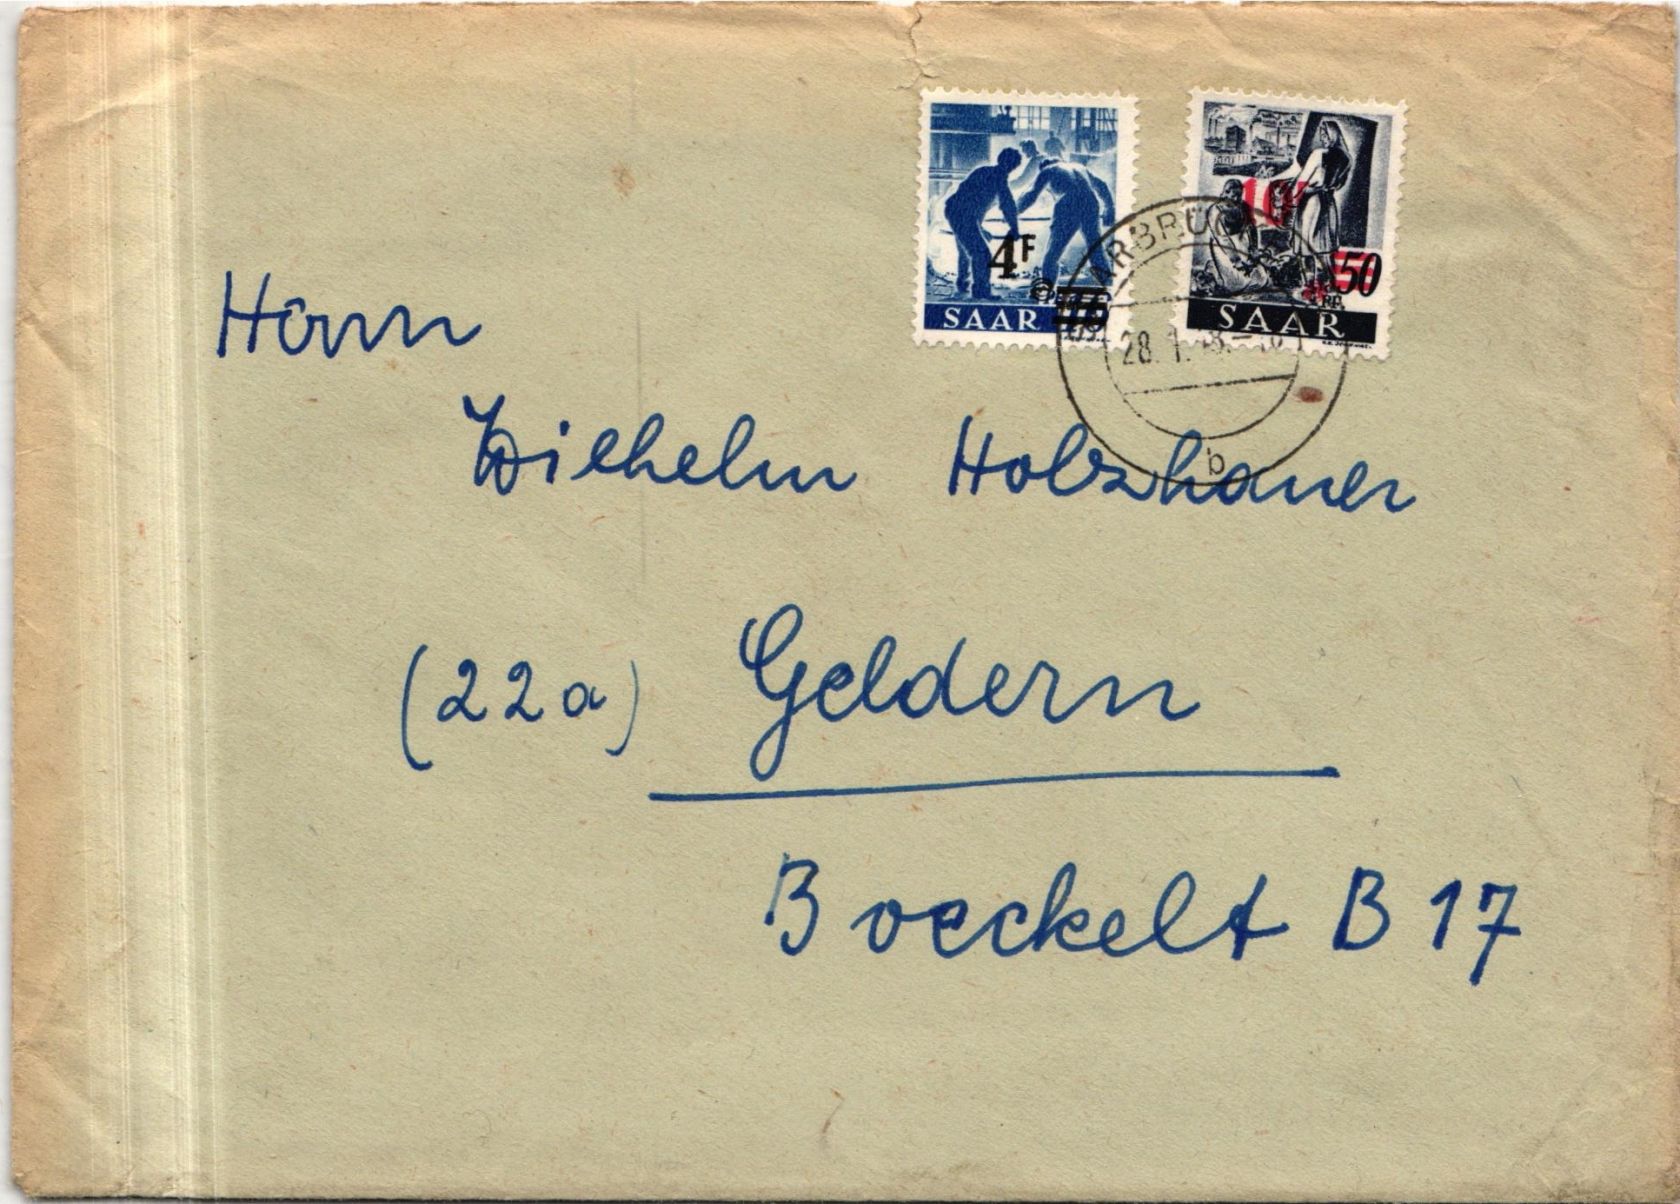 4F
SAAR
50
SAAR
28. 1.
b
Herrn
Wilhelm Holzhauer
(22a) Geldern
Boeckelt B 17